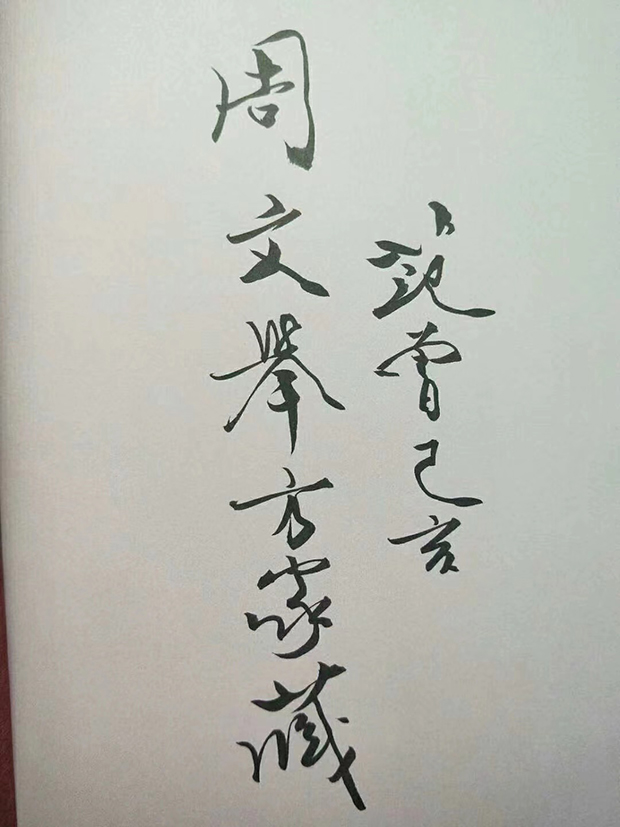 周文舉方家藏
范曾己亥